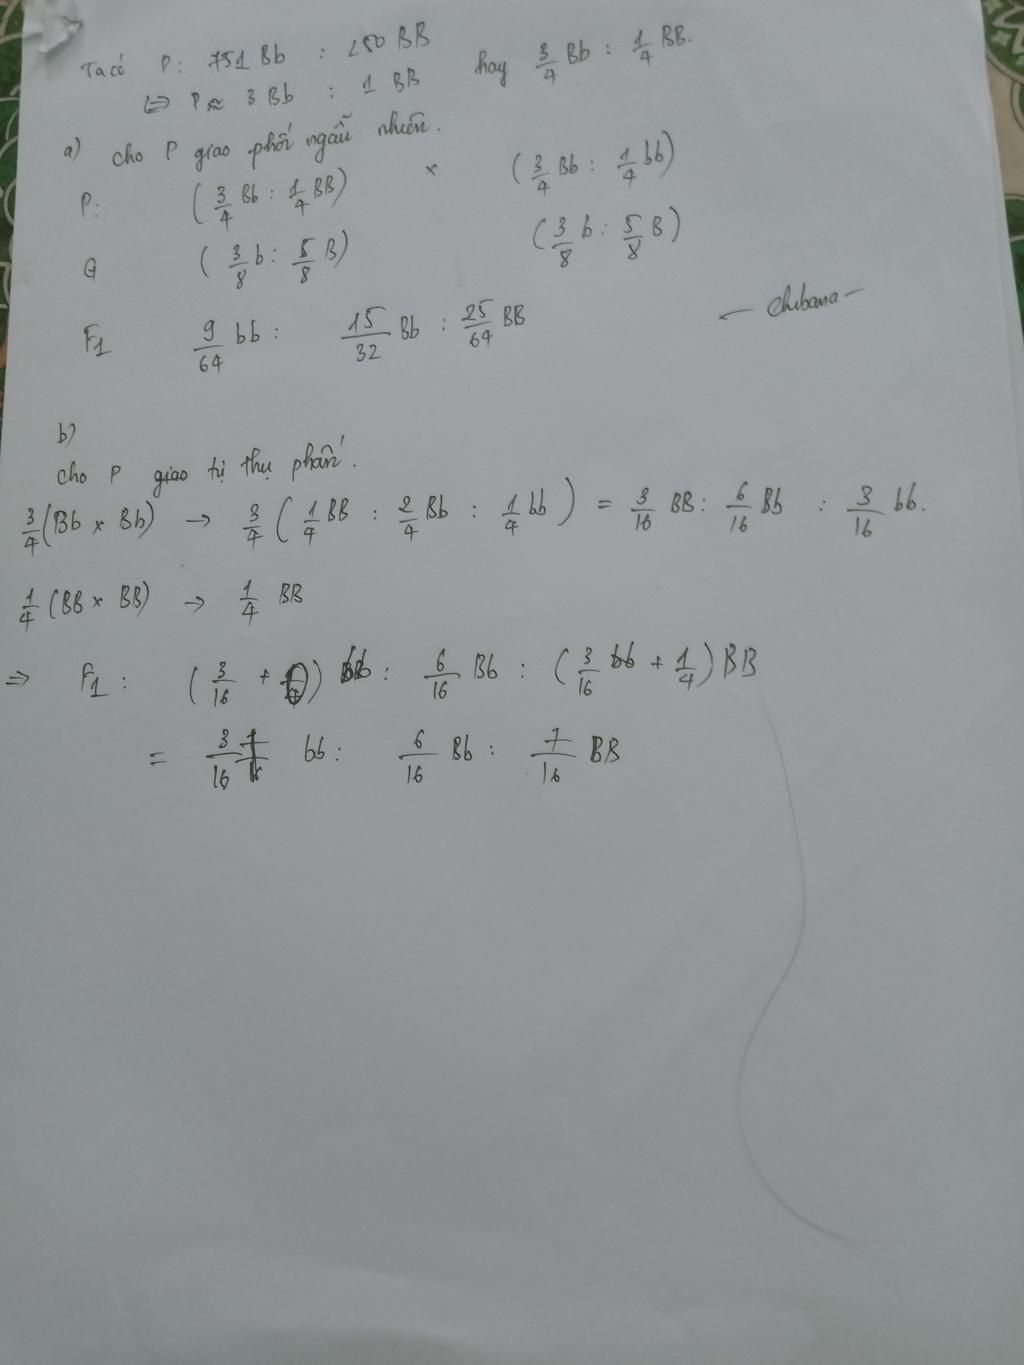 Ta có P: 751 Bb : 250 BB hay 3/4 Bb : 1/4 BB.
<=> P ≈ 3 Bb : 1 BB
a) cho P giao phối ngẫu nhiên.
P: (3/4 Bb : 1/4 BB) x (3/4 Bb : 1/4 bb)
G (3/8 b : 5/8 B) (3/8 b : 5/8 B)
F1 9/64 bb : 15/32 Bb : 25/64 BB
— Chibana —
b)
cho P giao tự thụ phấn.
3/4 (Bb x Bb) → 3/4 (1/4 BB : 2/4 Bb : 1/4 bb) = 3/16 BB : 6/16 Bb : 3/16 bb.
1/4 (BB x BB) → 1/4 BB
=> F1 : (3/16 + 0) bb : 6/16 Bb : (3/16 + 1/4) BB
= 3/16 bb : 6/16 Bb : 7/16 BB